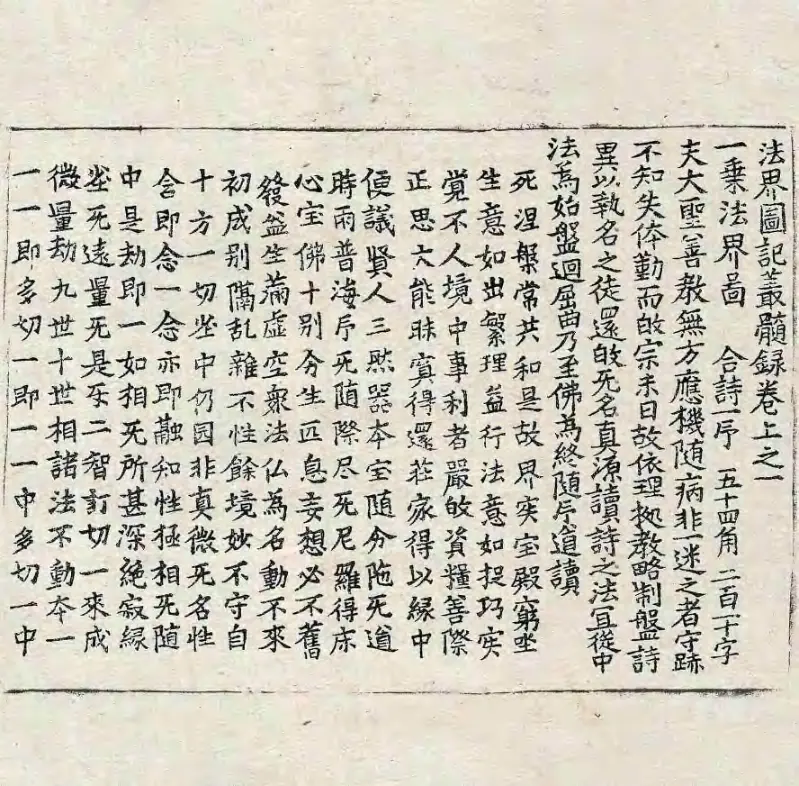 法界圖記叢髓録卷上之一
一乗法界畐 合詩一卩 五十四角 二百一十字
夫大聖善教無方應機随病非一迷之者守跡
不知失体勤而㱕宗未日故依理㨿教略制盤詩
異以執名之徒還㱕无名真源讀詩之法冝従中
法為始盤迴屈曲乃至佛為終随卩道讀
死涅槃常共和是故界实宝殿窮坐
生意如出繁理益行法意如捉巧实
覚不人境中事利者嚴㱕資糧善際
正思大能昧冥得還荘家得以縁中
便議賢人三然器本宝随分陁无道
時雨普海卩无随際尽无尼羅得床
心宝佛十别分生叵息妄想必不舊
發益生滿虚空衆法仏為名動不來
初成别隔乱雜不性餘境妙不守自
十方一切尘中仍园非真微无名性
含即念一念亦即融知性極相无随
中是劫即一如相无所甚深絶寂縁
尘无遠量无是互二智訂切一來成
微量劫九世十世相諸法不動本一
一一即多切一即一一中多切一中